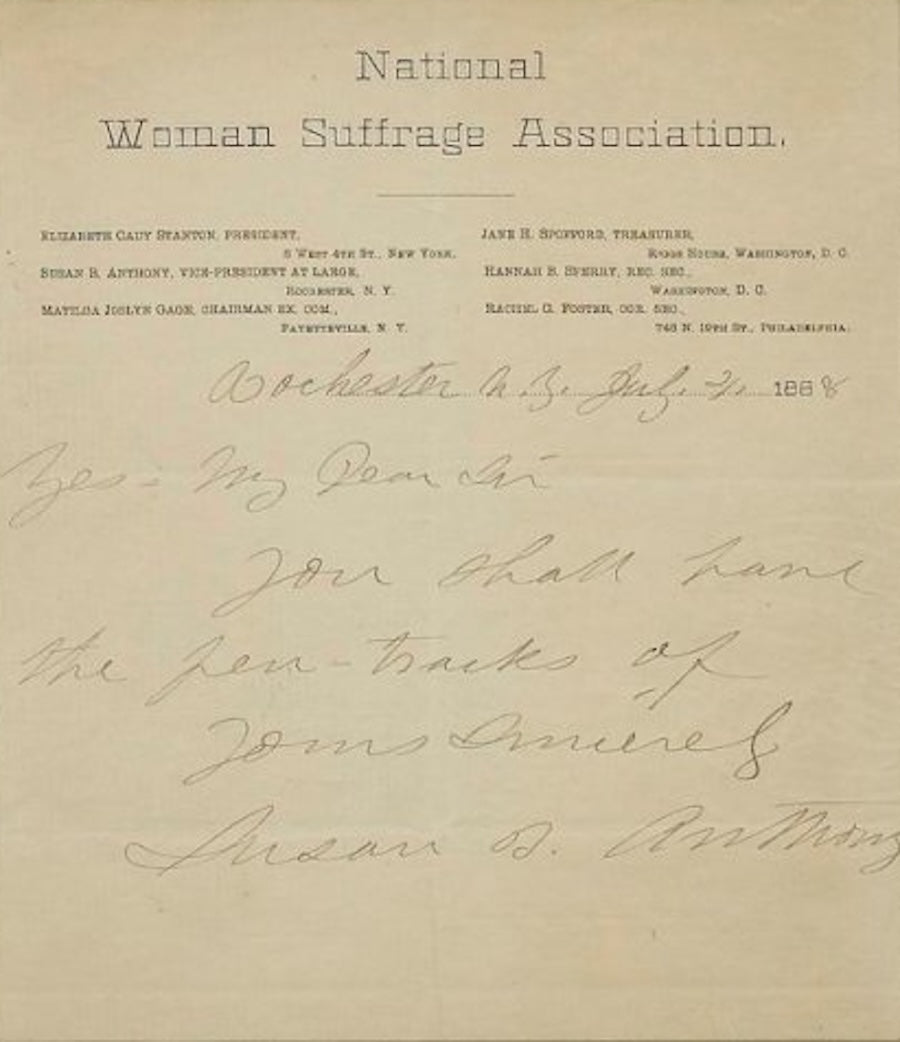 National
Woman Suffrage Association.
ELIZABETH CADY STANTON, PRESIDENT,
West 4th St., New York.
SUSAN B. ANTHONY, VICE-PRESIDENT AT LARGE,
Rochester, N. Y.
MATILDA JOSLYN GAGE, CHAIRMAN EX. COM.,
Fayetteville, N. Y.
JANE H. SPOFFORD, TREASURER,
Riggs House, Washington, D. C.
HANNAH B. SPERRY, REC. SEC.,
Washington, D. C.
RACHEL G. FOSTER, COR. SEC.,
748 N. 19th St., Philadelphia.
Rochester N.Y. July 21, 1888
Yes - My Dear Sir
You shall have
the pen-tracks of
Yours Sincerely
Susan B. Anthony